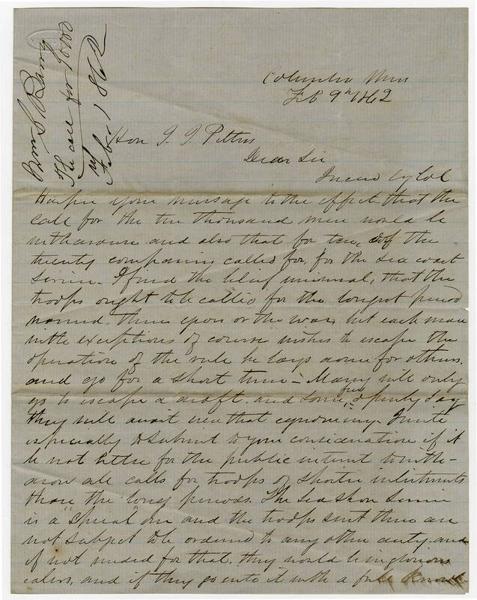 Wm S. Barry
The call for 10000
Feb. 1862
Columbus Miss
Feb 9th 1862
Hon J. J. Pettus
Dear Sir
I received by Col
Harper your message to the effect that the
call for the ten thousand men would be
withdrawn and also that for ten of the
twenty companies called for, for the sea coast
service. I find the feeling universal, that the
troops ought to be called for the longest period
named three years or the war, but each man
with exceptions of course wishes to escape the
operation of the rule he lays down for others,
and go for a short time – Many will only
go to escape a draft and some few openly say
they will await even that
especially to submit to your consideration if it
be not better for the public interest to with-
draw all calls for troops of shorter enlistments
than the long periods. The Sea Shore Service
is a "special" one and the troops sent there are
not subject to be ordered to any other duty and
if not needed for that, they would be inglorious
idlers, and if they go into it with a full knowl